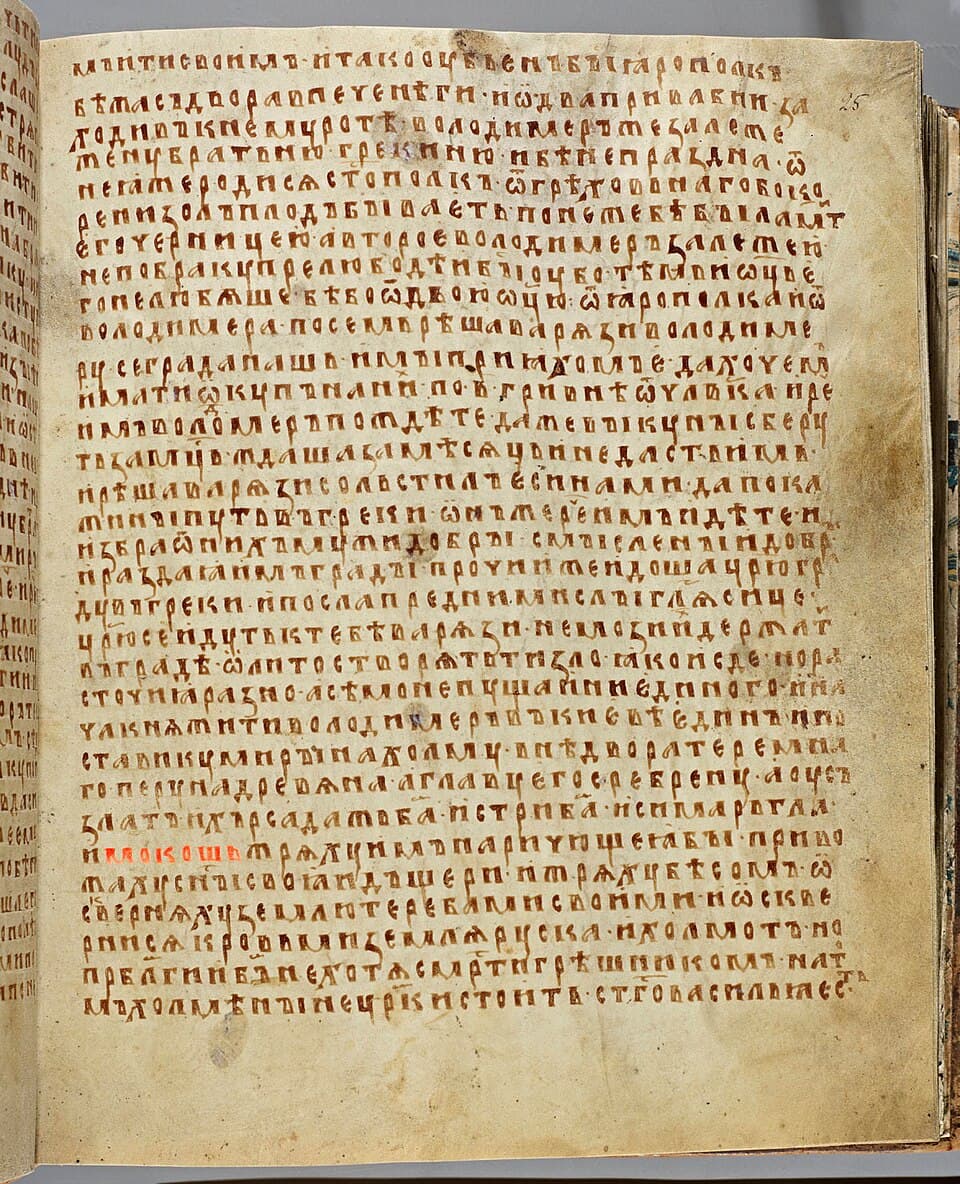 мыти своимъ · и тако оубьенъ бы ꙗрополкъ
бѣжа съ двора в печенѣги · и ѿдва приваби и за
ходивъ к нему ротѣ · володимеръ же залеже
жену братьню грекиню · и бѣ непраздна · ѿ
неꙗже родисѧ ст҃ополкъ · ѿ грѣховьнаго бо ко
рени золъ плодъ бываеть · понеже бѣ была мт҃и
его черницею · а второе володимеръ залеже ю
не по браку · прелюбодѣичичь бы оубо · тѣмь и ѡц҃ь
его не любѧше · бѣ бо ѿ двою ѡц҃ю · ѿ ꙗрополка и ѿ
володимера · посемь рѣша варѧзи володиме
ру се градъ нашь · и мы приꙗхомъ е · да хочемъ
имати ѡкупъ на ни · по · в҃ · гривнѣ ѿ чл҃вка · и ре
имъ воло димеръ пождѣте даже вы куны сберу
ть за мц҃ь · ждаша за мѣсѧць и не дасть имъ ·
и рѣша варѧзи сольстилъ еси нами · да пока
жи ны путь въ греки · ѡн же реч имъ идѣте · и
избра ѿ нихъ мужи добры · смыслены и добр
и раздаꙗ имъ грады · прочии же идоша ц҃рюгра
ду въ греки · и посла пред ними слы гл҃ѧ сице
ц҃рю се идуть к тебѣ варѧзи · не мози ихъ держати
въ градѣ · ѡли то створѧть ти зло · ꙗко и сде · но ра
сточи ꙗ разно · а сѣмо не пущаи ни единого · и на
ча кнѧжити володимеръ въ киевѣ единъ · и по
стави кумиры на холму · внѣ двора теремна
го · перуна древѧна · а главу его сребрену · а оусъ
златъ · и хърса дажьба · и стриба · и симарьгла ·
и мокошь жрѧху имъ наричюще ꙗ бы · приво
жаху сн҃ы своꙗ и дъщери · и жрѧху бѣсомъ · ѿ
сквернѧху землю теребами своими · и ѡскве
рнисѧ кровьми землѧ руска · и холмо тъ · но
прблг҃ии б҃ъ не хотѧ смрт҃и грѣшникомъ · на т
мь холмѣ нынe црк҃и стоить · ст҃го васильꙗ ес
ть